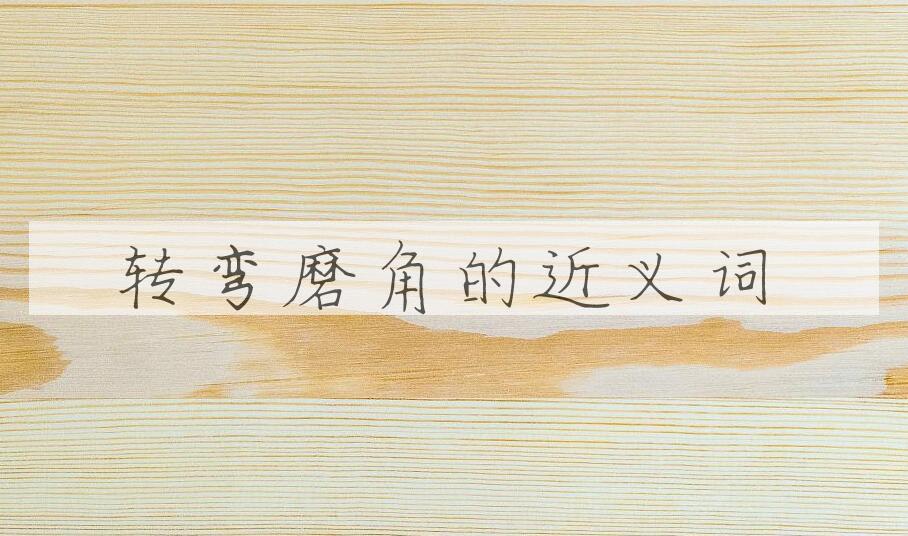 转弯磨角的近义词